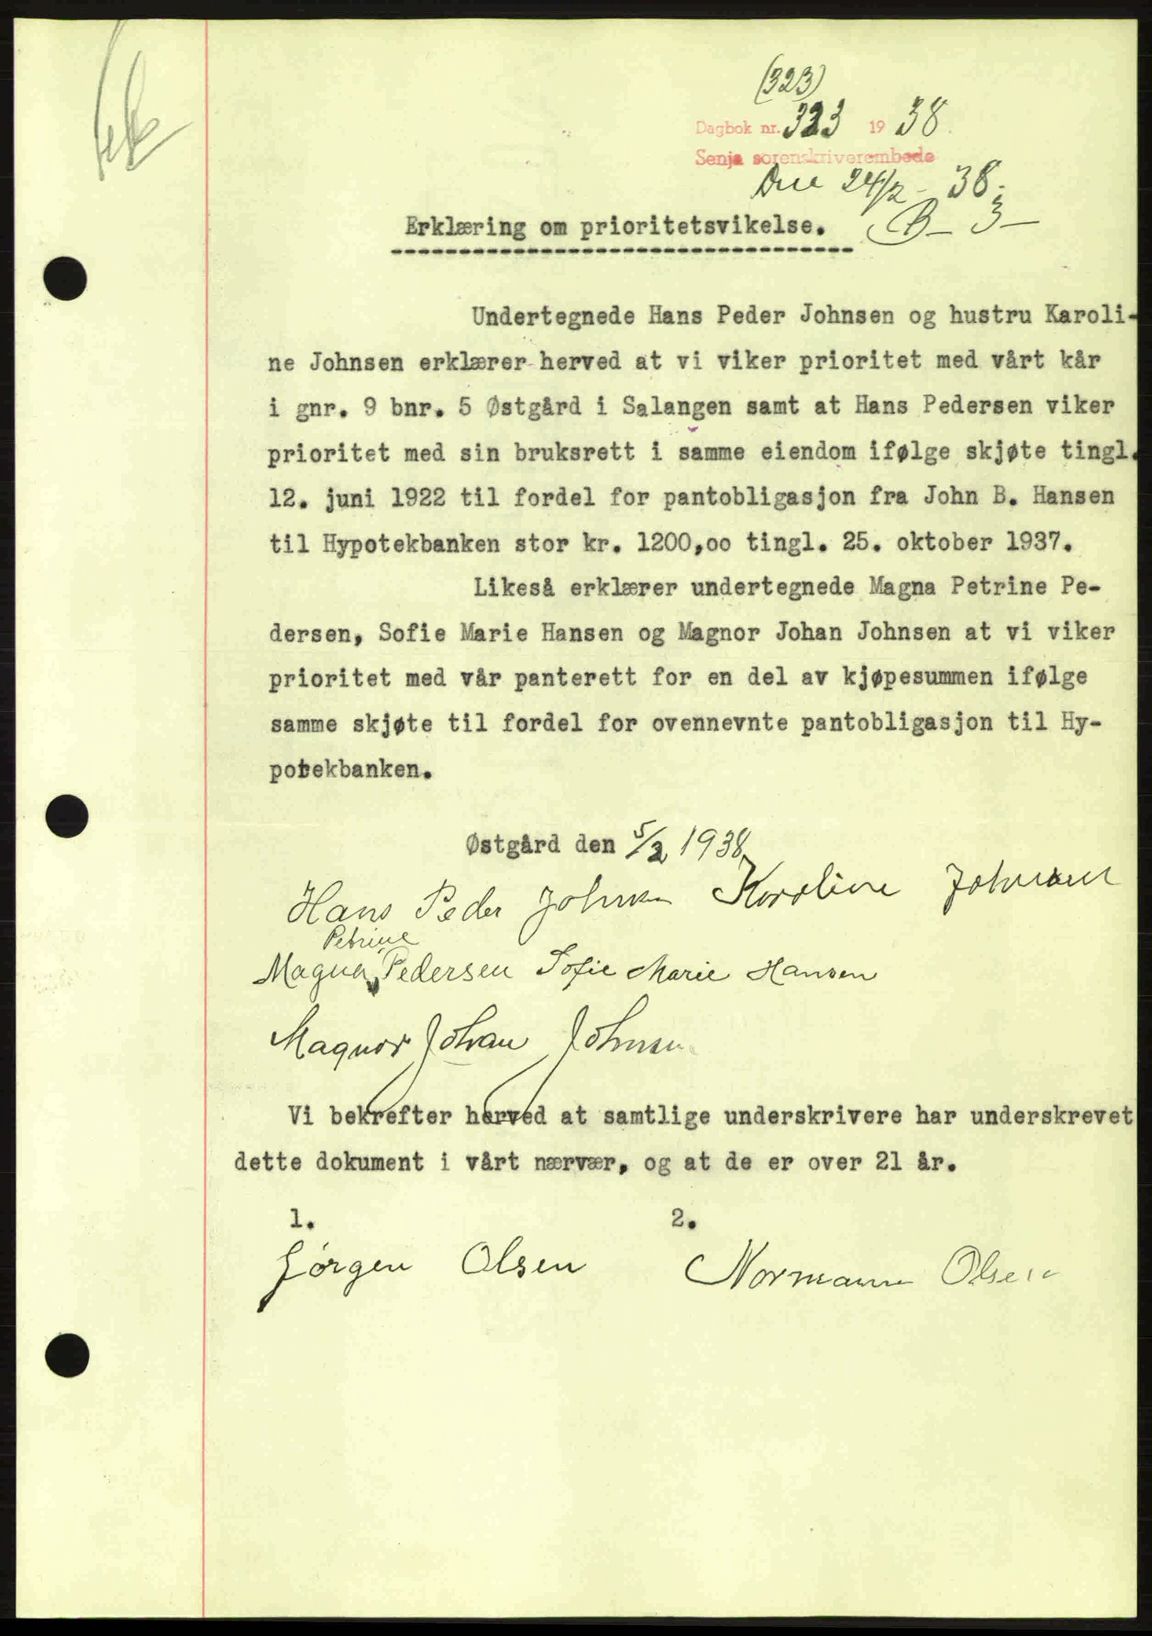 (323)
Dagbok nr. 323 1938
Senja sorenskriverembede
24/2 - 38.
B - 3 -
Erklæring om prioritetsvikelse.
Undertegnede Hans Peder Johnsen og hustru Karoli-
ne Johnsen erklærer herved at vi viker prioritet med vårt kår
i gnr. 9 bnr. 5 Østgård i Salangen samt at Hans Pedersen viker
prioritet med sin bruksrett i samme eiendom ifølge skjøte tingl.
12. juni 1922 til fordel for pantobligasjon fra John B. Hansen
til Hypotekbanken stor kr. 1200,oo tingl. 25. oktober 1937.
Likeså erklærer undertegnede Magna Petrine Pe-
dersen, Sofie Marie Hansen og Magnor Johan Johnsen at vi viker
prioritet med vår panterett for en del av kjøpesummen ifølge
samme skjøte til fordel for ovennevnte pantobligasjon til Hy-
potekbanken.
Østgård den 5/2 1938
Hans Peder Johnsen Karoline Johnsen
Petrine
Magna Pedersen Sofie Marie Hansen
Magnor Johan Johnsen
Vi bekrefter herved at samtlige underskrivere har underskrevet
dette dokument i vårt nærvær, og at de er over 21 år.
1. 2.
Jørgen Olsen Normann Olsen